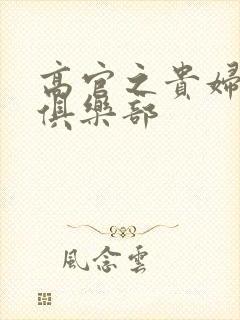 高官之貴婦
俱樂部
風念雲